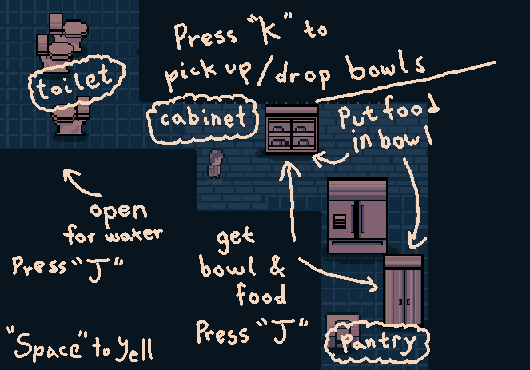 Press "K" to
pick up/drop bowls
toilet
cabinet
Put food
in bowl
open
for water
Press "J"
get
bowl &
food
Press "J"
"Space" to Yell
pantry